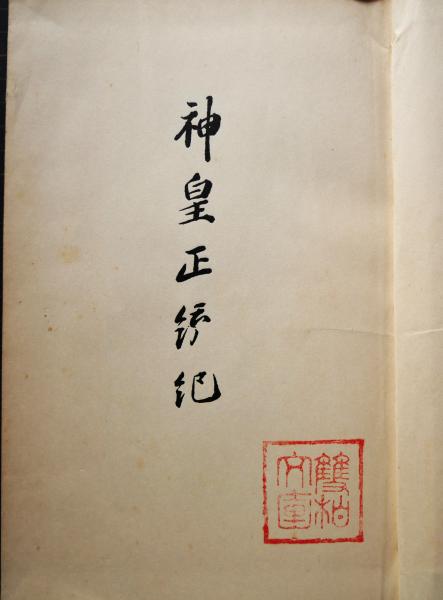 神皇正統紀
雙柏
文庫